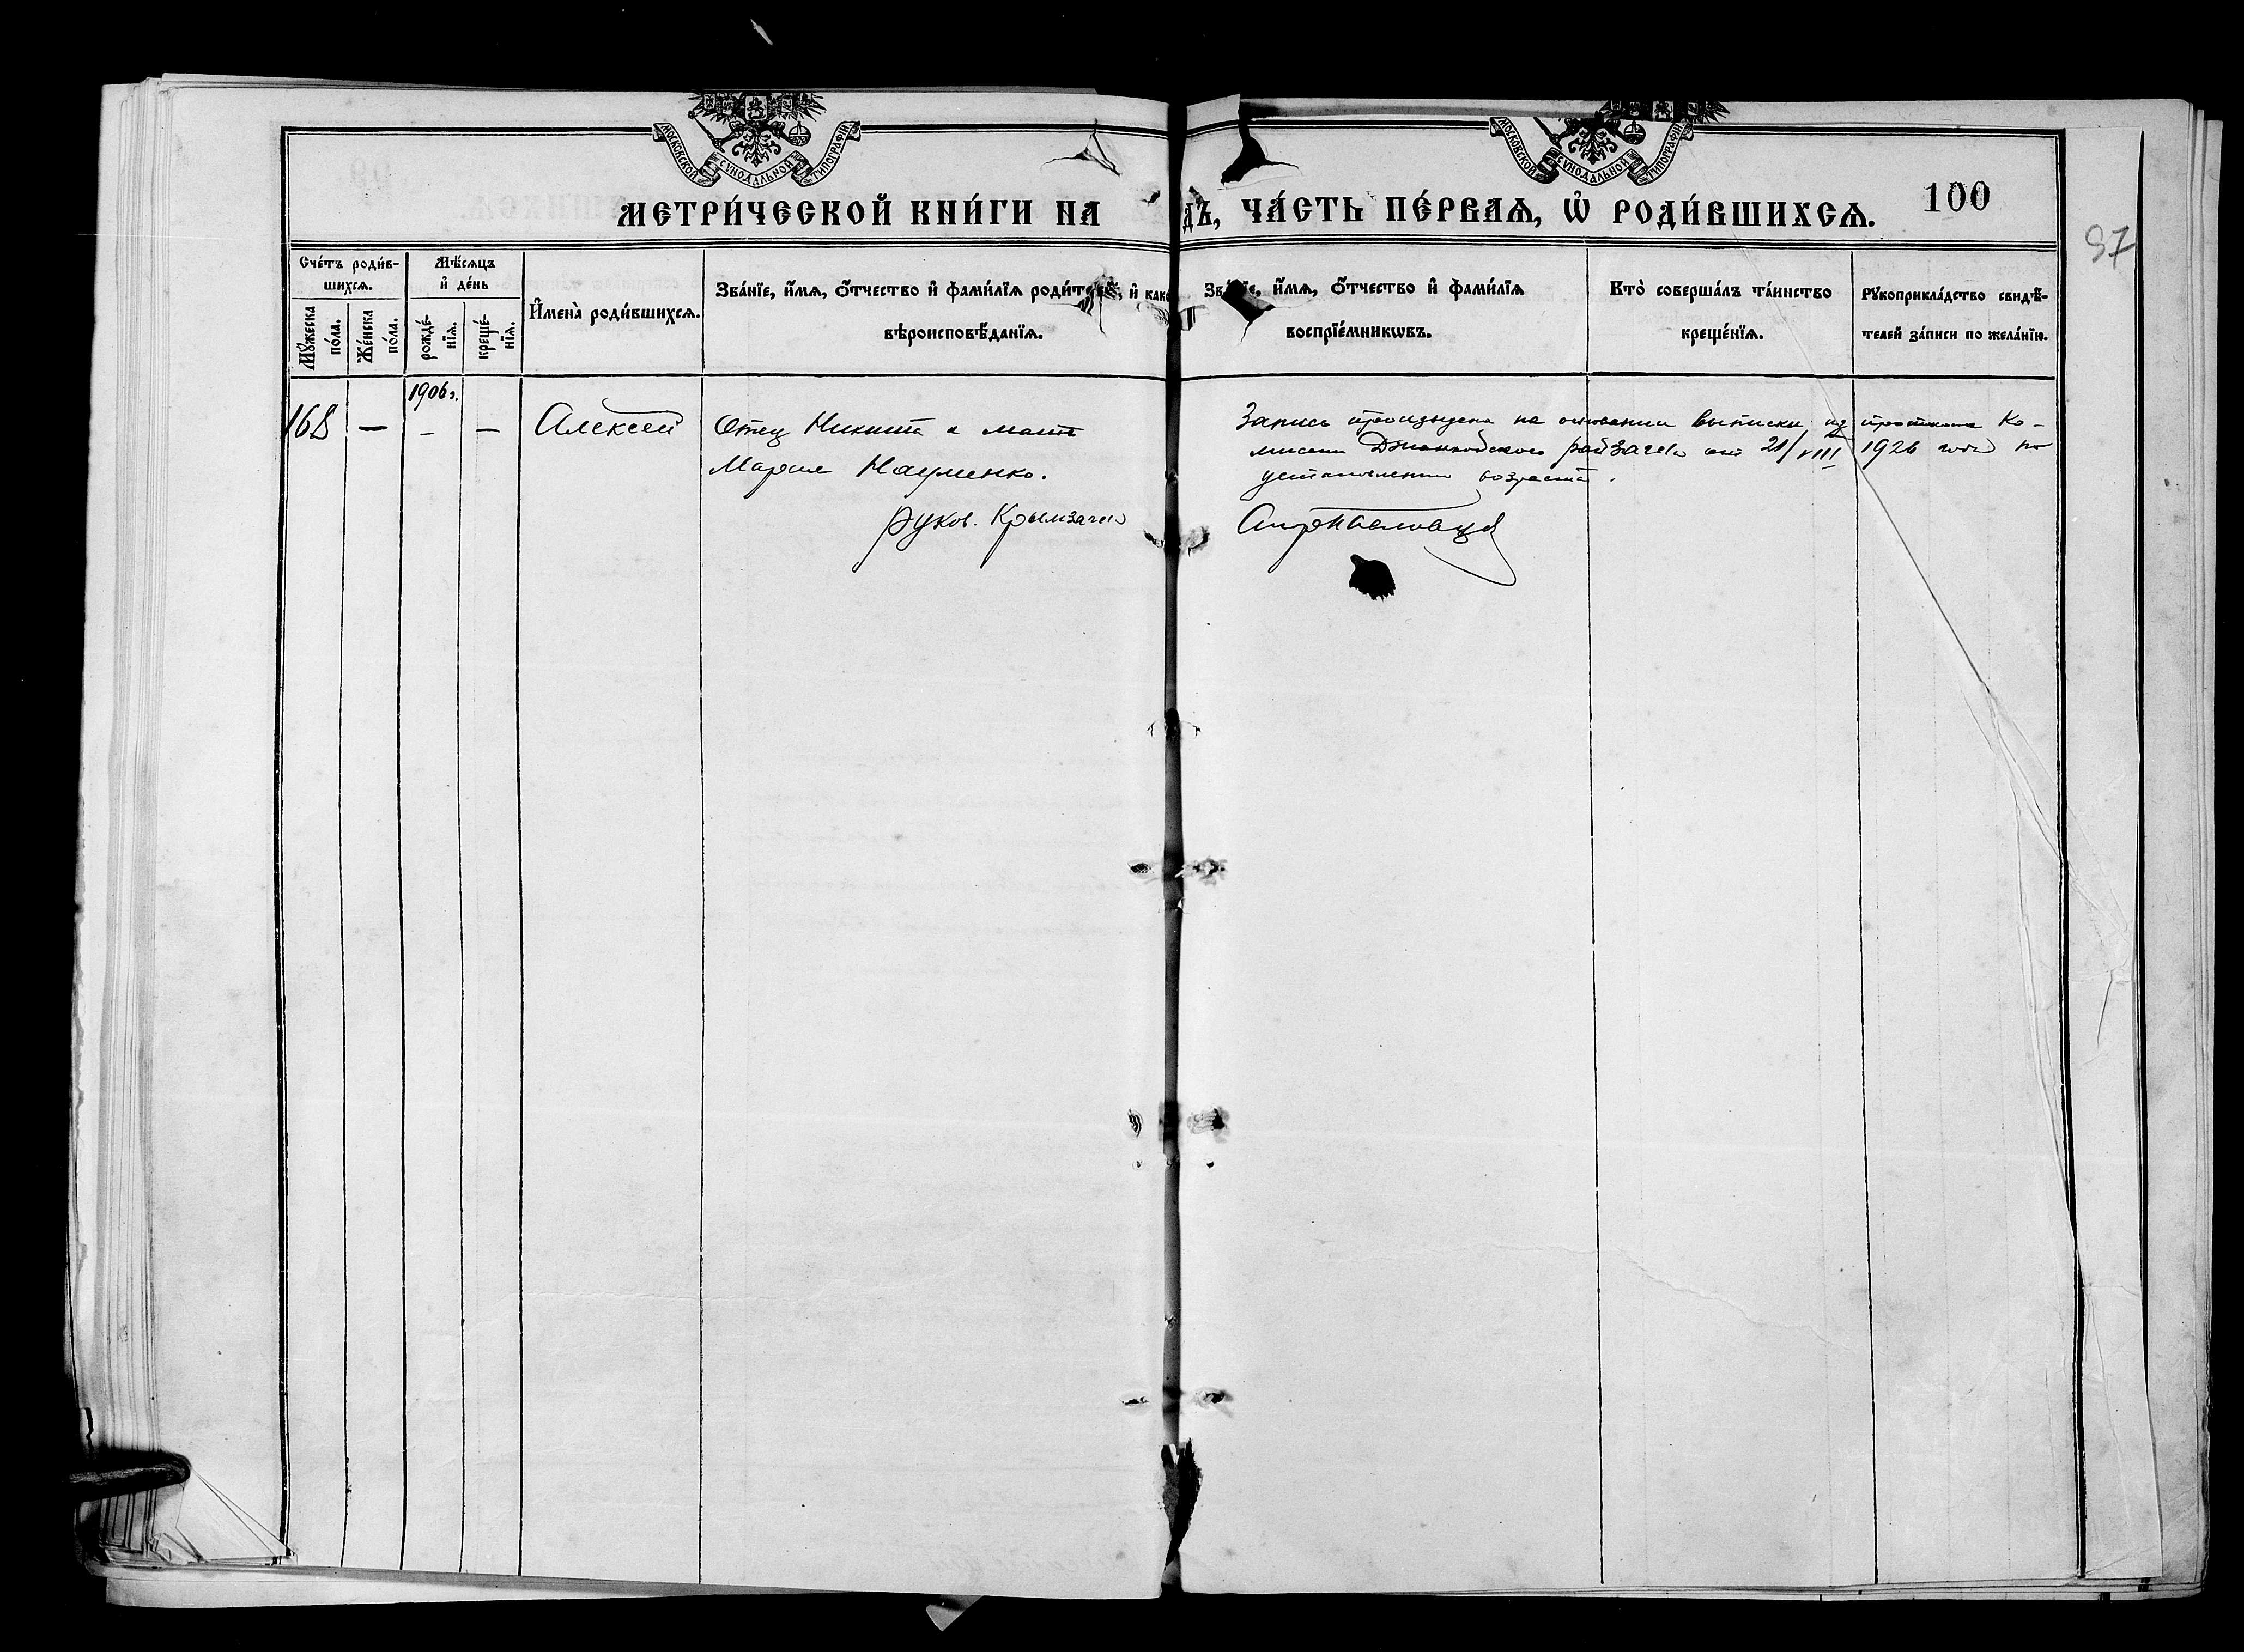 МОСКОВСКОЙ СѴНОДАЛЬНОЙ ТИПОГРАФІИ
МОСКОВСКОЙ СѴНОДАЛЬНОЙ ТИПОГРАФІИ
МЕТРИ́ЧЕСКОЙ КНИ́ГИ НА
ДЪ, ЧА́СТЬ ПЕ́РВАѦ, Ѡ҆ РОДИ́ВШИХСѦ.
100
97
Сче́тъ роди́в-
шихсѧ.
Мꙋ́жеска по́ла.
Же́нска по́ла.
Мѣ́сѧцъ
и҆ де́нь
рожде́-нїѧ.
креще́-нїѧ.
И҆мена̀ роди́вшихсѧ.
Зва́нїе, и҆́мѧ, ѻ҆́тчество и҆ фами́лїѧ роди́телей, и҆ како
вѣроисповѣ́данїѧ.
Зва́нїе, и҆́мѧ, ѻ҆́тчество и҆ фами́лїѧ
воспрїе́мникѡвъ.
Кто̀ соверша́лъ та́инство
креще́нїѧ.
Рꙋкоприкла́дство свидѣ́-
телей за́писи по жела́нїю.
1906 г.
168 — – — Алексей Отец Никита и мать
Мария Науменко.
Руков. Крымзагса
Запись произведена на основании выписки из протокола Ко-
миссии Джанкойского райзагса от 21/VIII 1926 года по
установлении возраста.